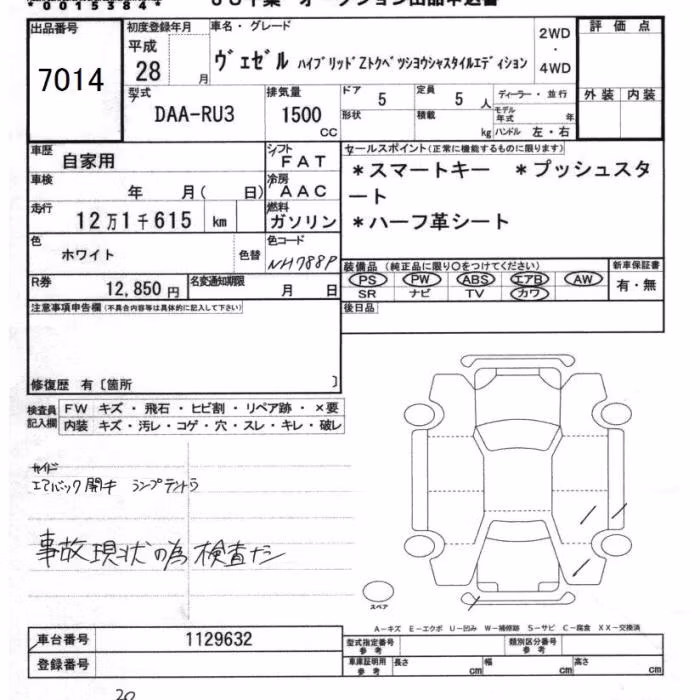 *00153844*
出品番号
7014
初度登録年月
平成
28 月
車名・グレード
ヴェゼル ハイブリッドZトクベツシヨウシャスタイルエディション
2WD
・
4WD
評価点
外装 内装
型式
DAA-RU3
排気量
1500
cc
ドア
5
定員
5 人
ディーラー・並行
モデル年式 年
形状
積載
kg
ハンドル 左・右
車歴
自家用
シフト
FAT
車検
年 月( 日)
冷房
AAC
走行
12万1千615 km
燃料
ガソリン
色
ホワイト
色替
色コード
NH788P
R券
12,850円
名変通知期限
月 日
セールスポイント(正常に機能するものに限ります)
*スマートキー *プッシュスタ
ート
*ハーフ革シート
装備品(純正品に限り○をつけてください)
PS PW ABS エアB AW
SR ナビ TV カワ
新車保証書
有・無
後日品
注意事項申告欄(不具合内容等は具体的に記入して下さい)
修復歴 有〔箇所 〕
検査員
記入欄
FW キズ・飛石・ヒビ割・リペア跡・×要
内装 キズ・汚レ・コゲ・穴・スレ・キレ・破レ
サイド
エアバック開キ ランプテントウ
事故現状の為検査ナシ
スペア
A-キズ E-エクボ U-凹み W-補修跡 S-サビ C-腐食 XX-交換済
車台番号
1129632
登録番号
型式指定番号
参考
類別区分番号
参考
車庫証明用
参考
長さ cm
幅 cm
高さ cm
20